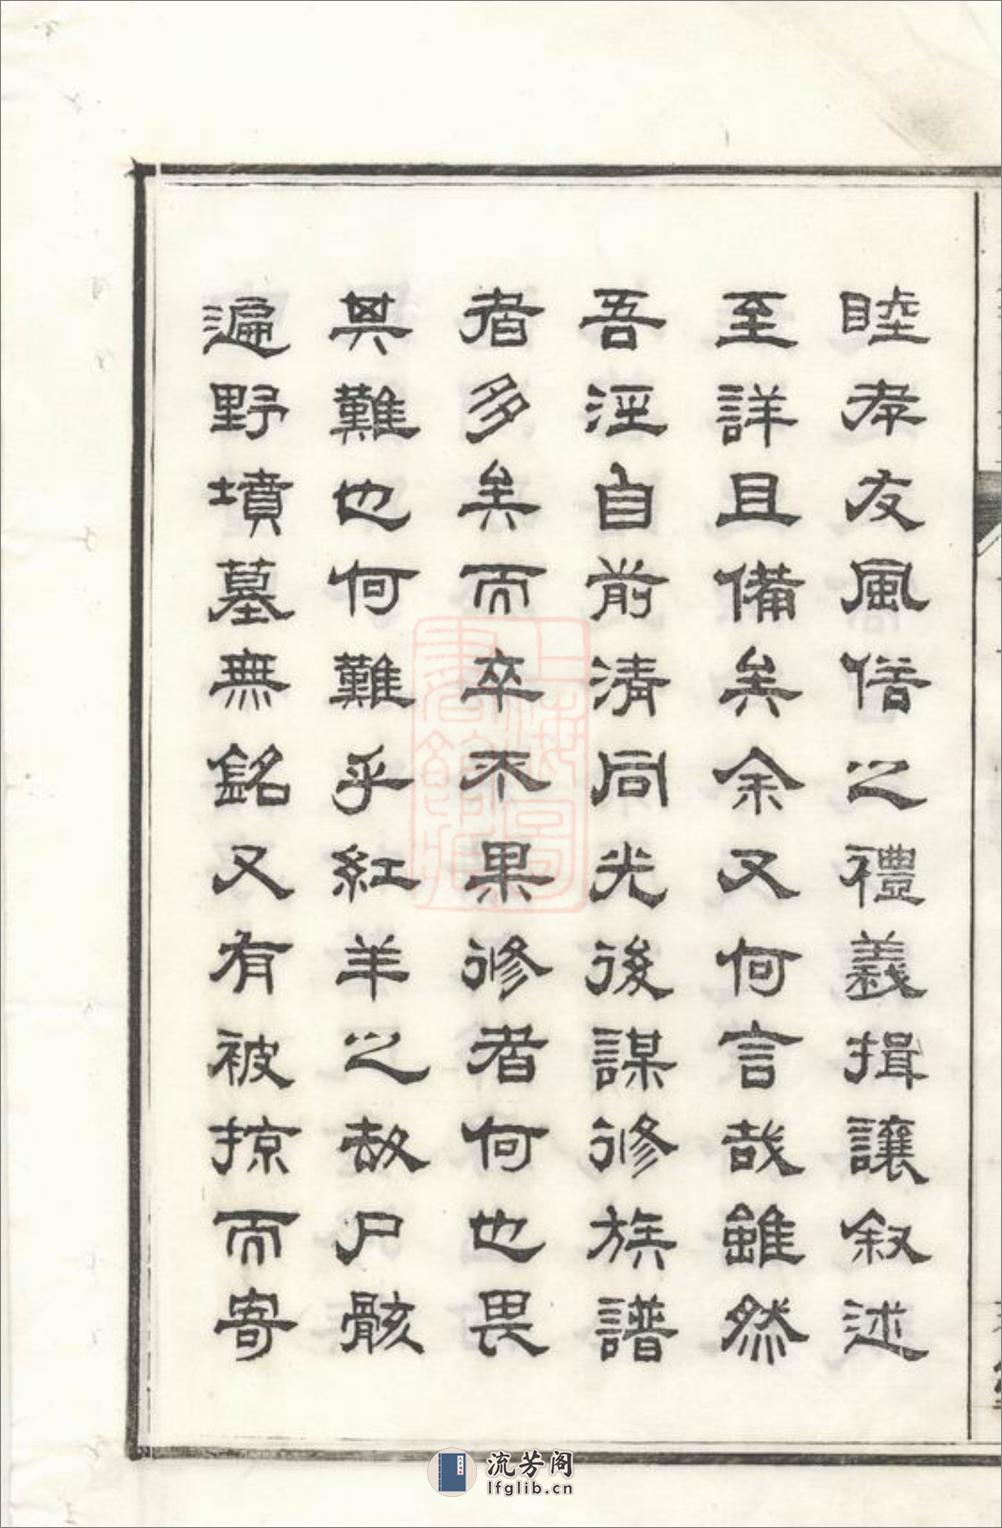 睦孝友風俗之禮義揖讓叙述
至詳且備矣余又何言哉雖然
吾涇自前清同光後謀修族譜
者多矣而卒不果修者何也畏
其難也何難乎紅羊之劫尸骸
遍野墳墓無銘又有被掠而寄
上海圖書館藏
流芳阁
lfglib.cn